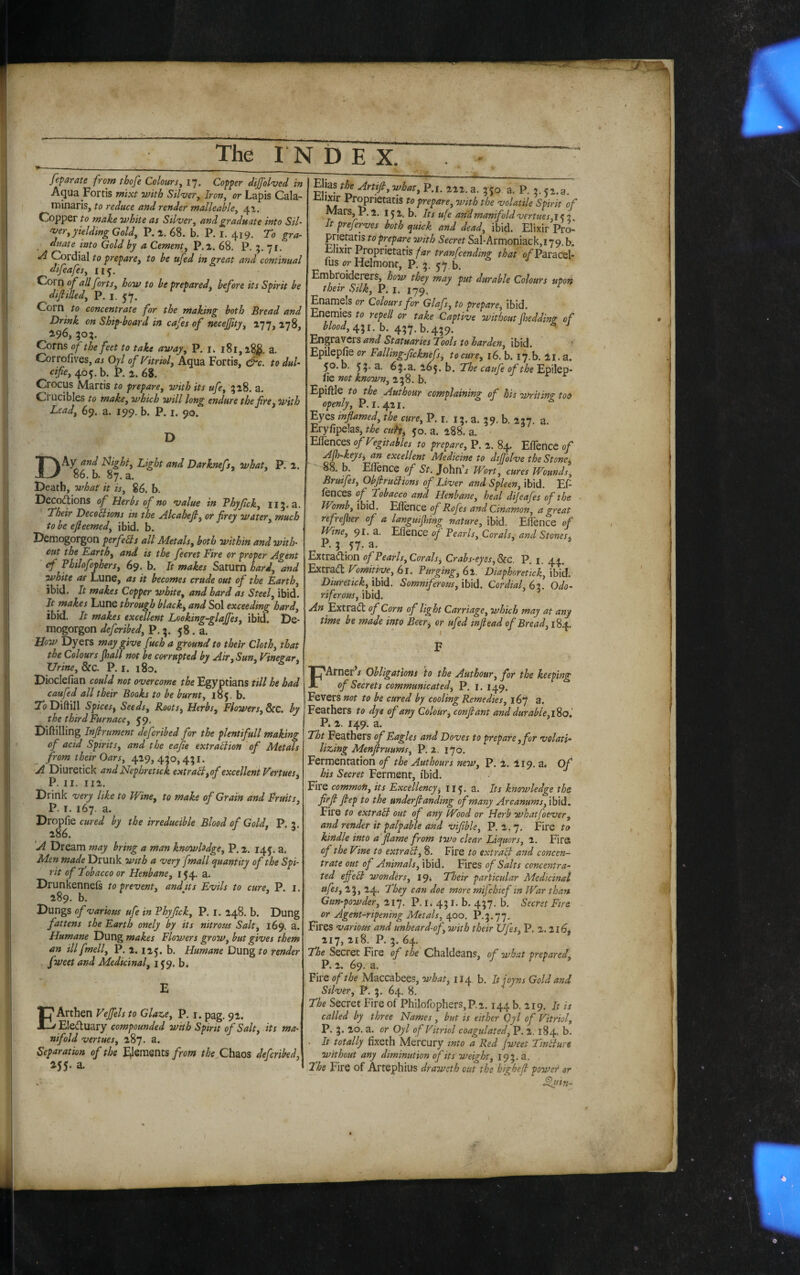 The INDEX.
ſeparate from thoſe Colours, 17. Copper diſſolved in
Aqua Fortis mixt with Silver, Iron, or Lapis Cala-
minaris, to reduce and render malleable, 42.
Copper to make white as Silver, and graduate into Sil-
ver, yielding Gold, P. 2. 68. b. P. 1. 419. To gra-
duate into Gold by a Cement, P. 2. 68. P. 3. 71.
A Cordial to prepare, to be uſed in great and continual
diſeaſes, 115.
Corn of all ſorts, how to be prepared, before its Spirit be
diſtilled, P. 1. 57.
Corn to concentrate for the making both Bread and
Drink on Ship-board in caſes of neceſſity, 277, 278,
296, 303.
Corns of the feet to take away, P. 1. 181, a.
Corroſives, as Oyl of Vitriol, Aqua Fortis, &c. to dul-
cifie, 405. b. P. 2. 68.
Crocus Martis to prepare, with its uſe, 328. a.
Crucibles to make, which will long endure the fire, with
Lead, 69. a. 199. b. P. 1. 90.
D
DAy and Night, Light and Darkneſs, what, P. 2.
86. b. 87. a.
Death, what it is, 86. b.
Decoctions of Herbs of no value in Phyſick, 113. a.
Their Decoctions in the Alcaheſt, or firey water, much
to be eſteemed, ibid. b.
Demogorgon perfects all Metals, both within and with-
out the Earth, and is the ſecret Fire or proper Agent
of Philoſophers, 69. b. It makes Saturn hard, and
white as Lune, as it becomes crude out of the Earth,
ibid. It makes Copper white, and hard as Steel, ibid.
It makes Lune through black, and Sol exceeding hard,
ibid. It makes excellent Looking-glaſſes, ibid. De-
mogorgon deſcribed, P. 3. 58. a.
How Dyers may give ſuch a ground to their Cloth, that
the Colours ſhall not be corrupted by Air, Sun, Vinegar,
Urine, &c. P. 1. 180.
Diocleſian could not overcome the Egyptians till he had
cauſed all their Books to be burnt, 185. b.
To Diſtill Spices, Seeds, Roots, Herbs, Flowers, &c. by
the third Furnace, 59.
Diſtilling Inſtrument deſcribed for the plentifull making
of acid Spirits, and the eaſie extraction of Metals
from their Oars, 429, 430, 431.
A Diuretick and Nephretick extract, of excellent Vertues,
P. 11. 112.
Drink very like to Wine, to make of Grain and Fruits,
P. 1. 167. a.
Dropſie cured by the irreducible Blood of Gold, P. 3.
286.
A Dream may bring a man knowledge, P. 2. 145. a.
Men made Drunk with a very ſmall quantity of the Spi-
rit of Tobacco or Henbane, 154. a.
Drunkenneſs to prevent, and its Evils to cure, P. 1.
289. b.
Dungs of various uſe in Phyſick, P. 1. 248. b. Dung
fattens the Earth onely by its nitrous Salt, 169. a.
Humane Dung makes Flowers grow, but gives them
an ill ſmell, P. 2. 125. b. Humane Dung to render
ſweet and Medicinal, 159. b.
E
EArthen Veſſels to Glaze, P. 1. pag. 92.
Electuary compounded with Spirit of Salt, its ma-
nifold vertues, 287. a.
Separation of the Elements from the Chaos deſcribed,
255. a.
Elias the Artiſt, what, P. 1. 222. a. 350 a. P. 3. 52. a.
Elixir Proprietatis to prepare, with the volatile Spirit of
Mars, P. 2. 152. b. Its uſe and manifold vertues, 153.
It preſerves both quick and dead, ibid. Elixir Pro-
prietatis to prepare with Secret Sal-Armoniack, 179. b.
Elixir Proprietatis far tranſcending that of Paracel-
ſus or Helmont, P. 3. 57 b.
Embroiderers, how they may put durable Colours upon
their Silk, P. 1. 179.
Enamels or Colours for Glaſs, to prepare, ibid.
Enemies to repell or take Captive without ſhedding of
blood, 431. b. 437. b. 439.
Engravers and Statuaries Tools to harden, ibid.
Epilepſie or Falling-ſickneſs, to cure, 16. b. 17. b. 21. a.
50. b. 53. a. 63. a. 265. b. The cauſe of the Epilep-
ſie not known, 238. b.
Epiſtle to the Authour complaining of his writing too
openly, P. 1. 421.
Eyes inflamed, the cure, P. 1. 13. a. 39. b. 237. a.
Eryſipelas, the cure, 50. a. 288. a.
Eſſences of Vegitables to prepare, P. 2. 84. Eſſence of
Aſh-keys, an excellent Medicine to diſſolve the Stone,
88. b. Eſſence of St. John's Wort, cures Wounds,
Bruiſes, Obſtructions of Liver and Spleen, ibid. Eſ-
ſences of Tobacco and Henbane, heal diſeaſes of the
Womb, ibid. Eſſence of Roſes and Cinamon, a great
refreſher of a languiſhing nature, ibid. Eſſence of
Wine, 91. a. Eſſence of Pearls, Corals, and Stones,
P. 3 57. a.
Extraction of Pearls, Corals, Crabs-eyes, &c. P. 1. 44.
Extract Vomitive, 61. Purging, 62. Diaphoretick, ibid.
Diuretick, ibid. Somniferous, ibid. Cordial, 63. Odo-
riferous, ibid.
An Extract of Corn of light Carriage, which may at any
time be made into Beer, or uſed inſtead of Bread, 184.
F
FArner's Obligations to the Authour, for the keeping
of Secrets communicated, P. 1. 149.
Fevers not to be cured by cooling Remedies, 167 a.
Feathers to dye of any Colour, conſtant and durable, 180.
P. 2. 149. a.
The Feathers of Eagles and Doves to prepare, for volati-
lizing Menſtruums, P. 2. 170.
Fermentation of the Authours new, P. 2. 219. a. Of
his Secret Ferment, ibid.
Fire common, its Excellency, 115. a. Its knowledge the
firſt ſtep to the underſtanding of many Arcanums, ibid.
Fire to extract out of any Wood or Herb whatſoever,
and render it palpable and viſible, P. 2. 7. Fire to
kindle into a flame from two clear Liquors, 2. Fire
of the Vine to extract, 8. Fire to extract and concen-
trate out of Animals, ibid. Fires of Salts concentra-
ted effect wonders, 19. Their particular Medicinal
uſes, 23, 24. They can doe more miſchief in War than
Gun-powder, 217. P. 1. 431. b. 437. b. Secret Fire
or Agent-ripening Metals, 400. P. 3. 77.
Fires various and unheard-of, with their Uſes, P. 2. 216,
217, 218. P. 3. 64.
The Secret Fire of the Chaldeans, of what prepared,
P. 2. 69. a.
Fire of the Maccabees, what, 114 b. It joyns Gold and
Silver, P. 3. 64. 8.
The Secret Fire of Philoſophers, P. 2. 144 b. 219. It is
called by three Names, but is either Oyl of Vitriol,
P. 3. 20. a. or Oyl of Vitriol coagulated, P. 2. 184. b.
It totally fixeth Mercury into a Red ſweet Tincture
without any diminution of its weight, 193. a.
The Fire of Artephius draweth out the higheſt power or
Quin-